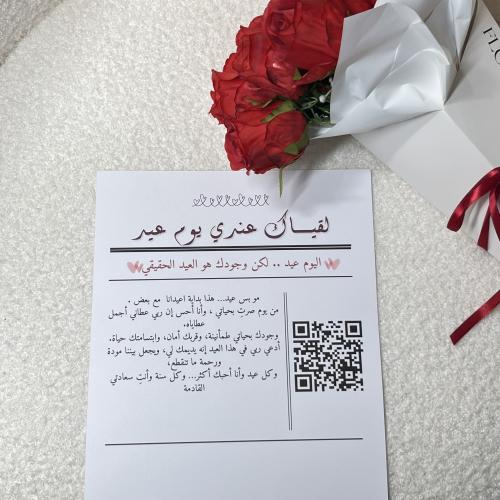 لقياك عندي يوم عيد
اليوم عيد .. لكن وجودك هو العيد الحقيقي
مو بس عيد... هذا بداية اعيادنا مع بعض .
من يوم صرتِ بحياتي ، وأنا أحس إن ربي عطاني أجمل
عطاياه.
وجودك بحياتي طمأنينة، وقربك أمان، وابتسامتك حياة.
أدعي ربي في هذا العيد إنه يديمك لي، ويجعل بيننا مودة
ورحمة ما تنقطع،
وكل عيد وأنا أحبك أكثر... وكل سنة وأنتِ سعادتي
القادمة